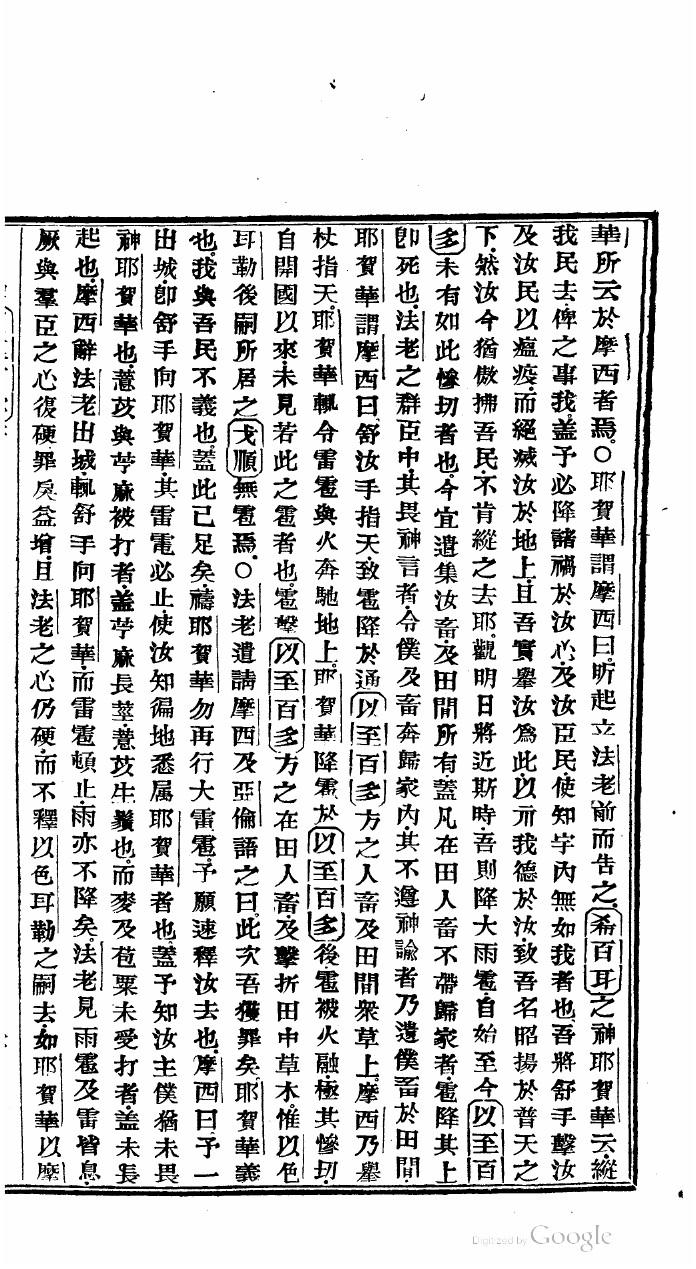 華所云於摩西者焉。○耶賀華謂摩西曰昕起立法老前而告之希百耳之神耶賀華云縱
我民去俾之事我蓋予必降諸禍於汝心及汝臣民使知宇內無如我者也吾將舒手擊汝
及汝民以瘟疫而絕滅汝於地上且吾實舉汝爲此以示我德於汝致吾名昭揚於普天之
下然汝今猶傲拂吾民不肯縱之去耶觀明日將近斯時吾則降大雨雹自始至今以至百
多未有如此慘切者也今宜遣集汝畜及田間所有蓋凡在田人畜不帶歸家者雹降其上
即死也法老之群臣中其畏神言者令僕及畜奔歸家內其不遵神諭者乃遺僕畜於田間
耶賀華謂摩西曰舒汝手指天致雹降於通以至百多方之人畜及田間衆草上摩西乃舉
杖指天耶賀華輒令雷雹與火奔馳地上耶賀華降雹於以至百多後雹被火融極其慘切
自開國以來未見若此之雹者也雹擊以至百多方之在田人畜及擊折田中草木惟以色
耳勒後嗣所居之戈順無雹焉。○法老遣請摩西及亞倫語之曰此次吾獲罪矣耶賀華義
也我與吾民不義也蓋此已足矣禱耶賀華勿再行大雷雹予願速釋汝去也摩西曰予一
出城即舒手向耶賀華其雷電必止使汝知徧地悉属耶賀華者也蓋予知汝主僕猶未畏
神耶賀華也薏苡與苧麻被打者蓋苧麻長莖薏苡生鬚也而麥及苞粟未受打者蓋未長
起也摩西辭法老出城輒舒手向耶賀華而雷雹頓止雨亦不降矣法老見雨雹及雷皆息
厥與羣臣之心復硬罪戾益增且法老之心仍硬而不釋以色耳勒之嗣去如耶賀華以摩
Digitized by Google